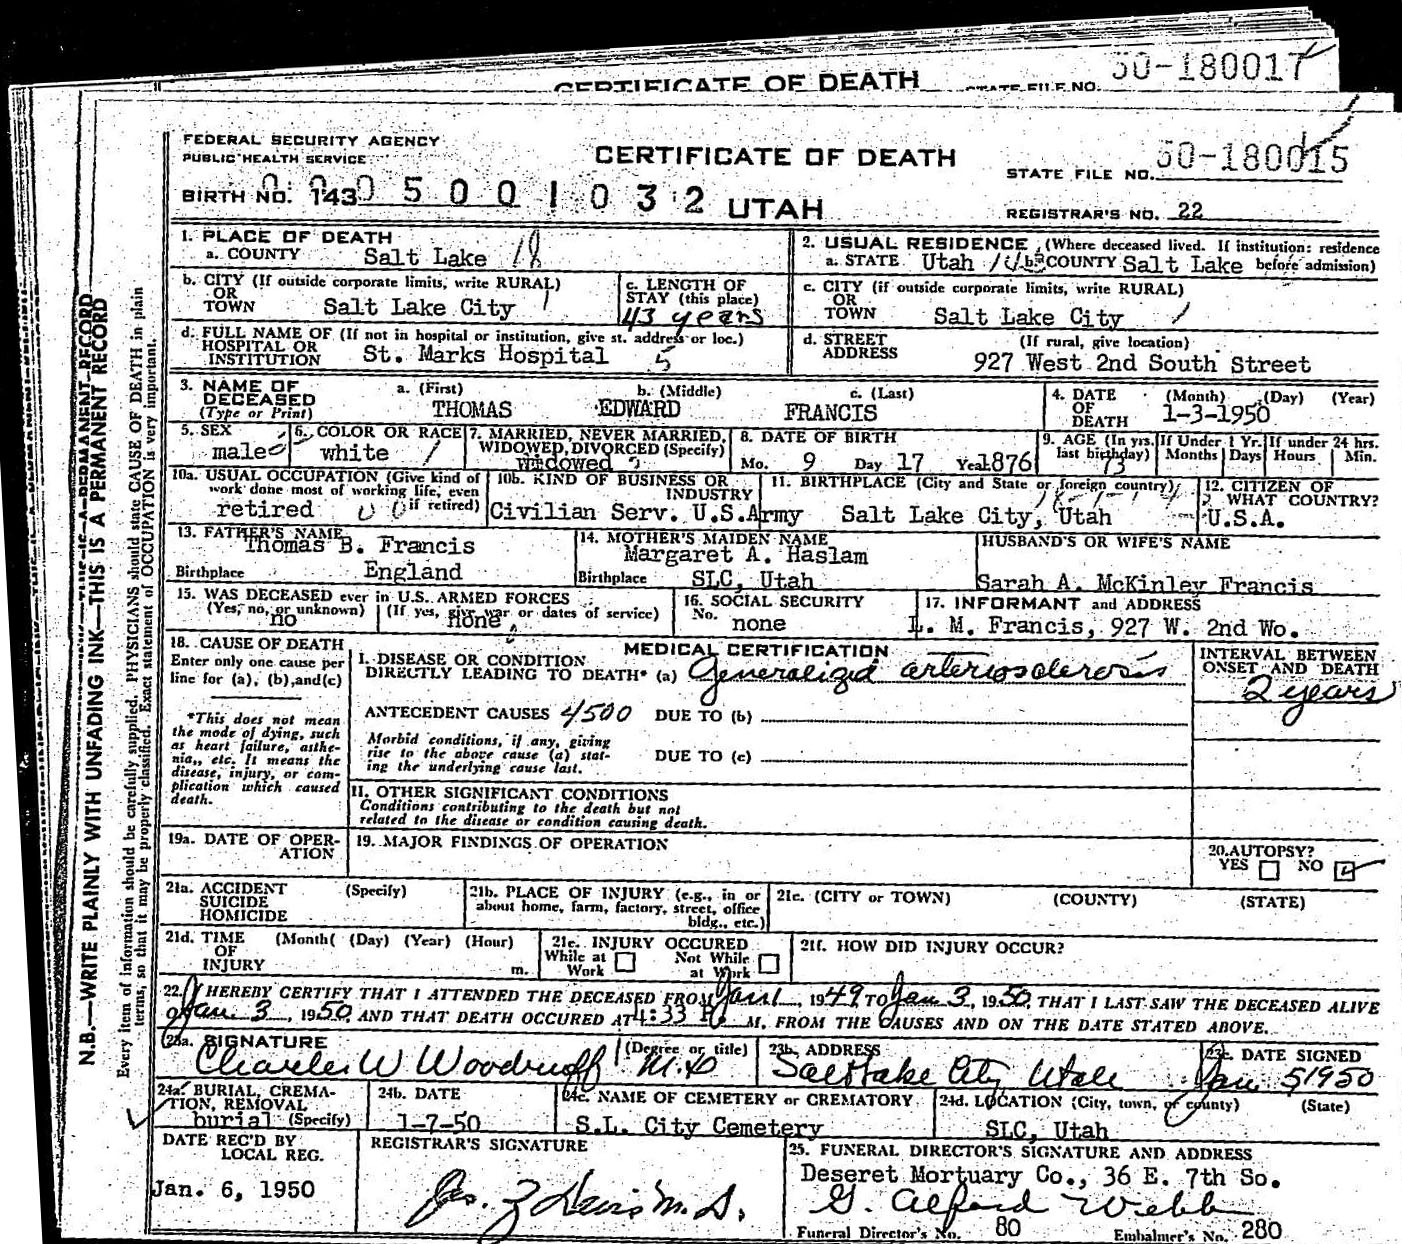 CERTIFICATE OF DEATH STATE FILE NO. 50-180017
FEDERAL SECURITY AGENCY
PUBLIC HEALTH SERVICE
CERTIFICATE OF DEATH
STATE FILE NO. 50-180015
BIRTH NO. 143 0 5 0 0 1 0 3 2 UTAH
REGISTRAR'S NO. 22
N.B.—WRITE PLAINLY WITH UNFADING INK—THIS IS A PERMANENT RECORD
Every item of information should be carefully supplied. PHYSICIANS should state CAUSE OF DEATH in plain
terms, so that it may be properly classified. Exact statement of OCCUPATION is very important.
1. PLACE OF DEATH
a. COUNTY Salt Lake 18
2. USUAL RESIDENCE (Where deceased lived. If institution: residence
a. STATE Utah b. COUNTY Salt Lake before admission)
b. CITY (If outside corporate limits, write RURAL)
OR
TOWN Salt Lake City 1
c. LENGTH OF
STAY (this place)
43 years
c. CITY (if outside corporate limits, write RURAL)
OR
TOWN Salt Lake City 1
d. FULL NAME OF (If not in hospital or institution, give st. address or loc.)
HOSPITAL OR
INSTITUTION St. Marks Hospital 5
d. STREET
ADDRESS
(If rural, give location)
927 West 2nd South Street
3. NAME OF
DECEASED
(Type or Print)
a. (First) b. (Middle) c. (Last)
THOMAS EDWARD FRANCIS
4. DATE
OF
DEATH
(Month) (Day) (Year)
1-3-1950
5. SEX
male
6. COLOR OR RACE
white
7. MARRIED, NEVER MARRIED,
WIDOWED, DIVORCED (Specify)
widowed
8. DATE OF BIRTH
Mo. 9 Day 17 Year 1876
9. AGE (In yrs.
last birthday)
73
If Under 1 Yr.
Months Days
If under 24 hrs.
Hours Min.
10a. USUAL OCCUPATION (Give kind of
work done most of working life, even
if retired)
retired
10b. KIND OF BUSINESS OR
INDUSTRY
Civilian Serv. U.S.Army
11. BIRTHPLACE (City and State or foreign country)
Salt Lake City, Utah
12. CITIZEN OF
WHAT COUNTRY?
U.S.A.
13. FATHER'S NAME
Thomas B. Francis
Birthplace England
14. MOTHER'S MAIDEN NAME
Margaret A. Haslam
Birthplace SLC, Utah
HUSBAND'S OR WIFE'S NAME
Sarah A. McKinley Francis
15. WAS DECEASED ever in U.S. ARMED FORCES
(Yes, no, or unknown) (If yes, give war or dates of service)
no none
16. SOCIAL SECURITY
No. none
17. INFORMANT and ADDRESS
L. M. Francis, 927 W. 2nd Wo.
18. CAUSE OF DEATH
Enter only one cause per
line for (a), (b), and (c)
*This does not mean
the mode of dying, such
as heart failure, asthe-
nia, etc. It means the
disease, injury, or com-
plication which caused
death.
MEDICAL CERTIFICATION
I. DISEASE OR CONDITION
DIRECTLY LEADING TO DEATH* (a) Generalized arteriosclerosis
INTERVAL BETWEEN
ONSET AND DEATH
2 years
ANTECEDENT CAUSES 4500 DUE TO (b)
Morbid conditions, if any, giving
rise to the above cause (a) stat-
ing the underlying cause last.
DUE TO (c)
II. OTHER SIGNIFICANT CONDITIONS
Conditions contributing to the death but not
related to the disease or condition causing death.
19a. DATE OF OPER-
ATION
19. MAJOR FINDINGS OF OPERATION
20. AUTOPSY?
YES NO
21a. ACCIDENT (Specify)
SUICIDE
HOMICIDE
21b. PLACE OF INJURY (e.g., in or
about home, farm, factory, street, office
bldg., etc.)
21c. (CITY or TOWN) (COUNTY) (STATE)
21d. TIME (Month( (Day) (Year) (Hour)
OF
INJURY m.
21e. INJURY OCCURED
While at Not While
Work at Work
21f. HOW DID INJURY OCCUR?
22. I HEREBY CERTIFY THAT I ATTENDED THE DECEASED FROM Jan 1, 1949 TO Jan 3, 1950, THAT I LAST SAW THE DECEASED ALIVE
ON Jan. 3, 1950, AND THAT DEATH OCCURED AT 4:33 P. M. FROM THE CAUSES AND ON THE DATE STATED ABOVE.
23a. SIGNATURE (Degree or title)
Charles W Woodruff M.D
23b. ADDRESS
Salt Lake City Utah
23c. DATE SIGNED
Jan 5 1950
24a. BURIAL, CREMA-
TION, REMOVAL
burial (Specify)
24b. DATE
1-7-50
24c. NAME OF CEMETERY or CREMATORY
S.L. City Cemetery
24d. LOCATION (City, town, or county) (State)
SLC, Utah
DATE REC'D BY
LOCAL REG.
Jan. 6, 1950
REGISTRAR'S SIGNATURE
25. FUNERAL DIRECTOR'S SIGNATURE AND ADDRESS
Deseret Mortuary Co., 36 E. 7th So.
G. Alford Webb
Funeral Director's No. 80 Embalmer's No. 280